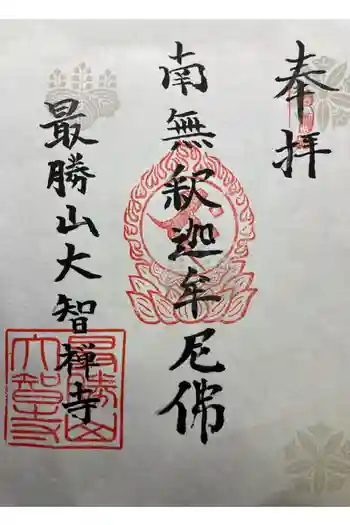 奉拝
南無釈迦牟尼佛
最勝山大智禅寺
最勝山
大智寺